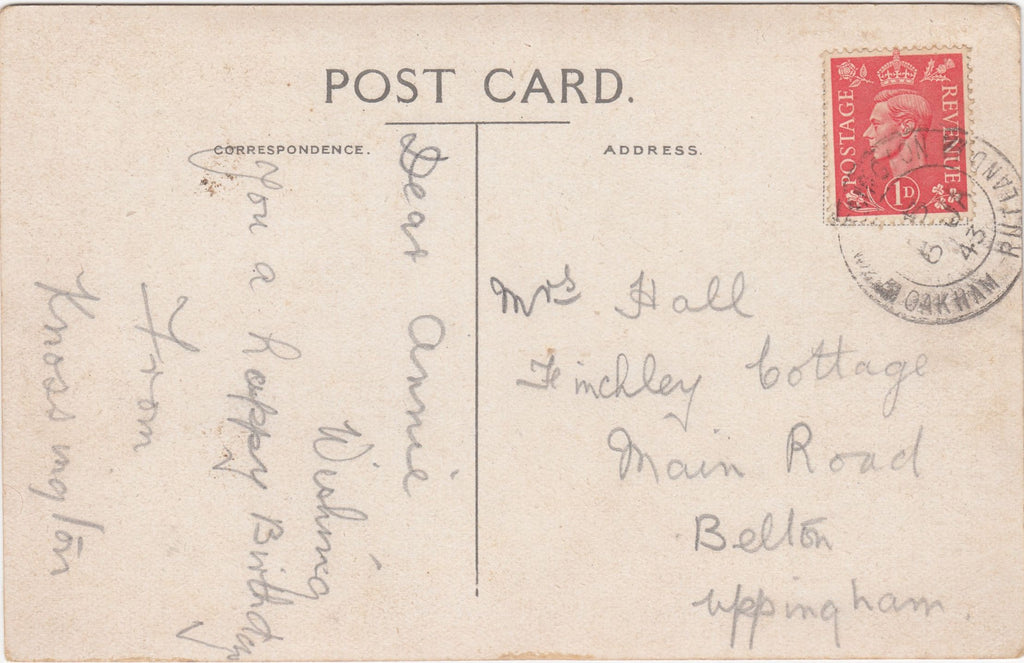 POST CARD.
CORRESPONDENCE.
ADDRESS.
POSTAGE
REVENUE
1D
OAKHAM RUTLAND
43
Dear Annie
Wishing
you a happy Birthday
From
Knossington
Mrs Hall
Finchley Cottage
Main Road
Belton
uppingham